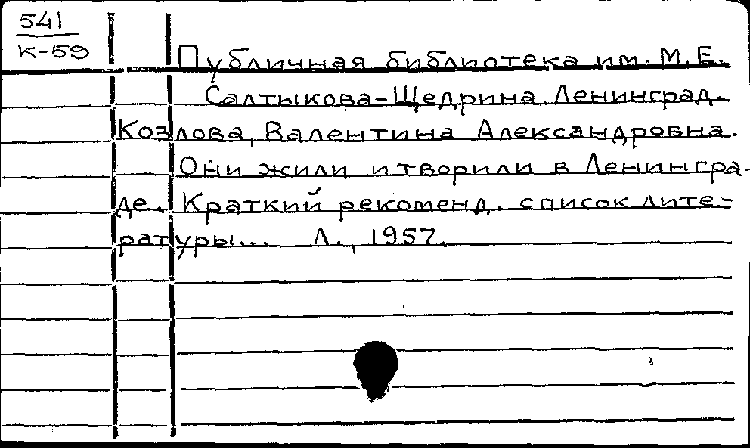 541
К-59
Публичная библиотека им. М.Е.
Салтыкова-Щедрина. Ленинград.
Козлова, Валентина Александровна.
Они жили и творили в Ленингра-
де. Краткий рекоменд. список лите-
ратуры... Л., 1957.